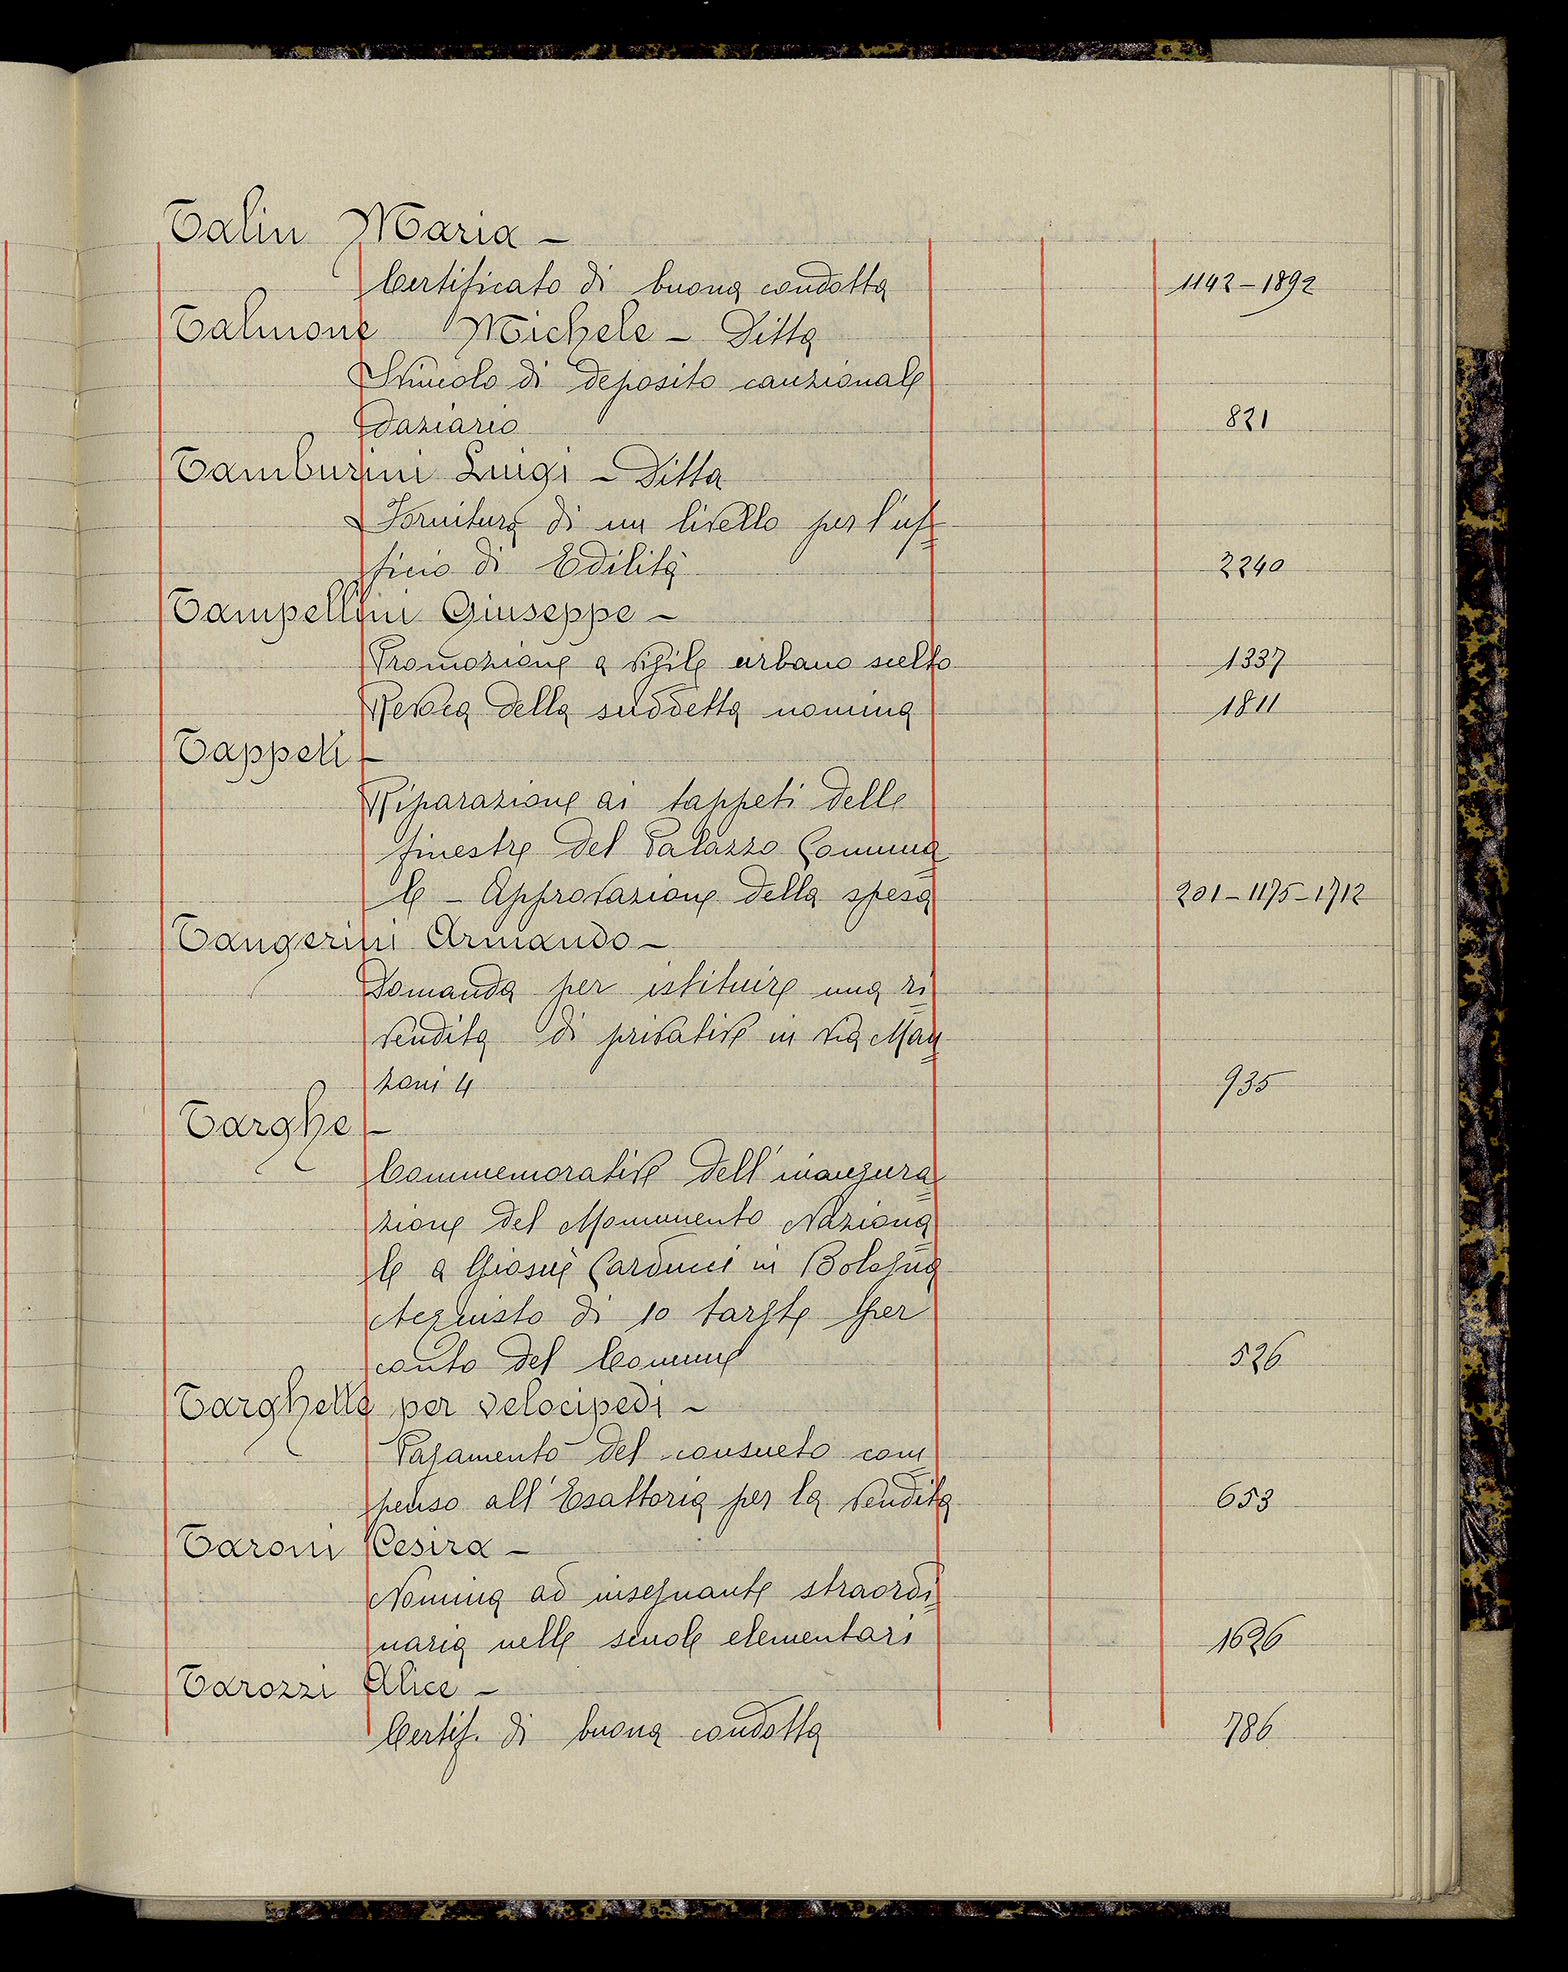 Talin Maria –
Certificato di buona condotta 1142–1892
Talmone Michele – Ditta
Svincolo di deposito cauzionale
daziario 821
Tamburini Luigi – Ditta
Fornitura di un livello per l'uf=
ficio di Edilità 2240
Tampellini Giuseppe –
Promozione a vigile urbano scelto 1337
Revoca della suddetta nomina 1811
Tappeti –
Riparazione ai tappeti delle
finestre del Palazzo Comuna=
le – Approvazione della spesa 201–1175–1712
Tangerini Armando –
Domanda per istituire una ri=
vendita di privative in via Man=
zoni 4 935
Targhe –
Commemorative dell'inaugura=
zione del Monumento Naziona=
le a Giosuè Carducci in Bologna
Acquisto di 10 targhe per
conto del Comune 526
Targhette per velocipedi –
Pagamento del consueto com=
penso all'Esattoria per la vendita 653
Taroni Cesira –
Nomina ad insegnante straordi=
naria nelle scuole elementari 1626
Tarozzi Alice –
Certif. di buona condotta 786